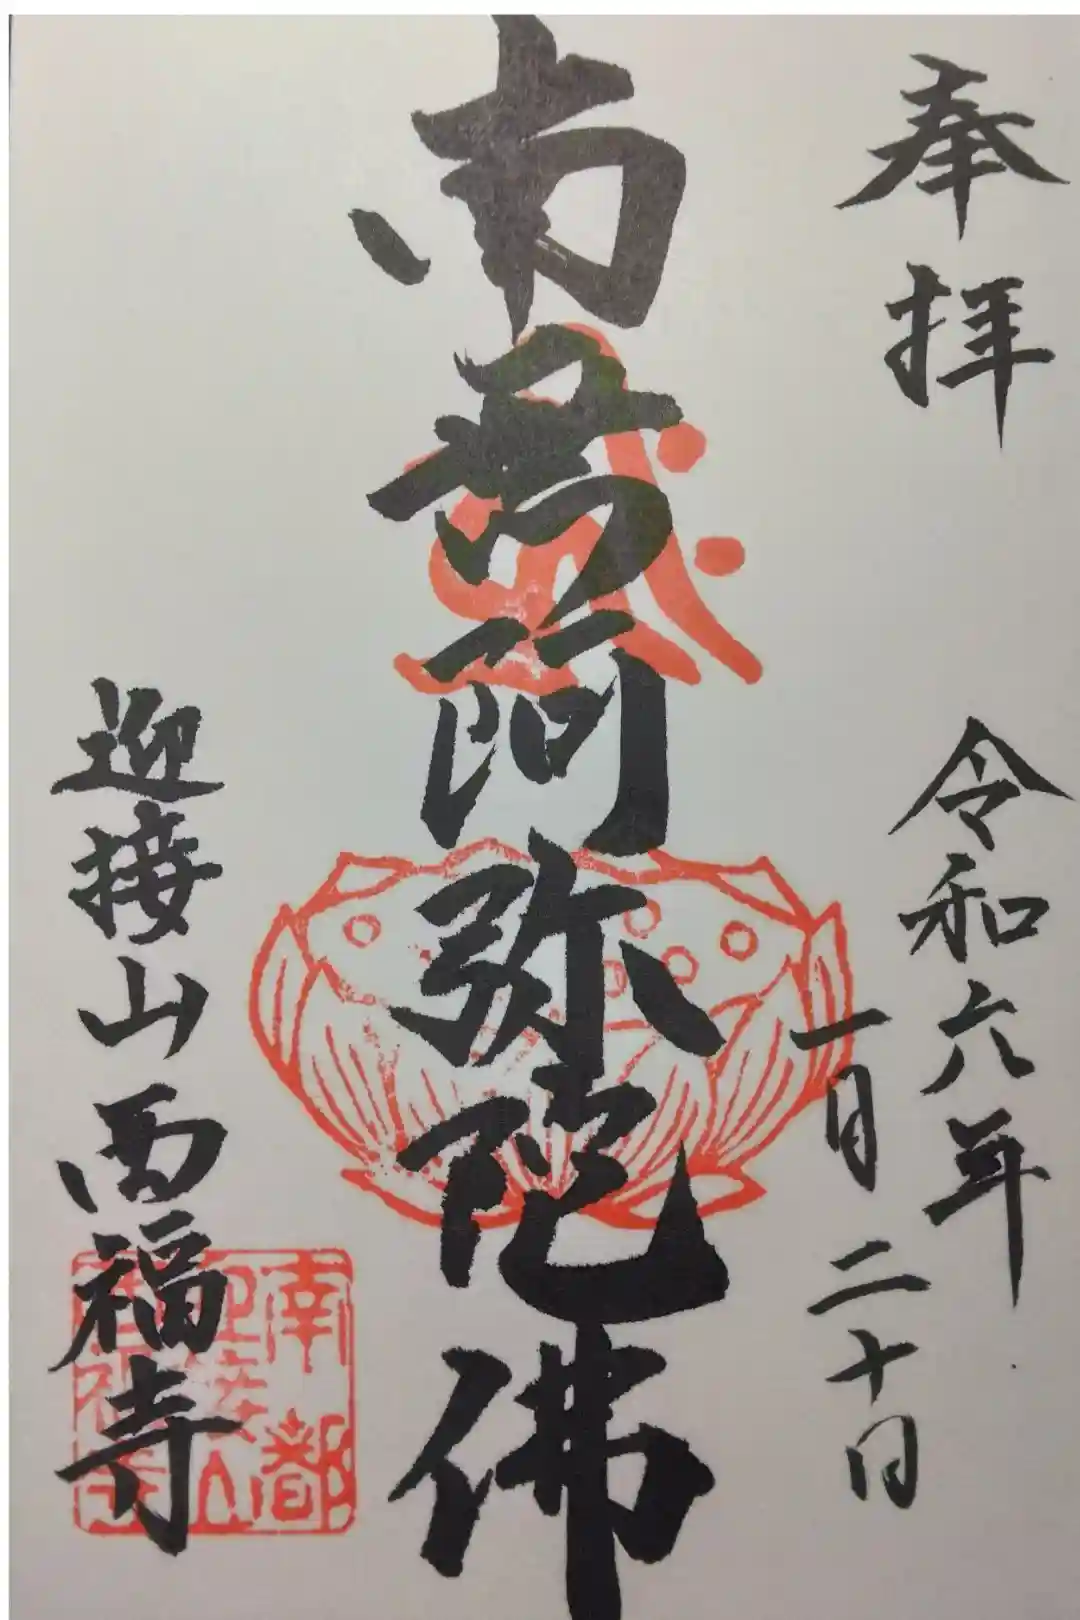 奉拝
令和六年
一月二十日
南無阿弥陀佛
迎接山西福寺
南都
迎接山
西福寺